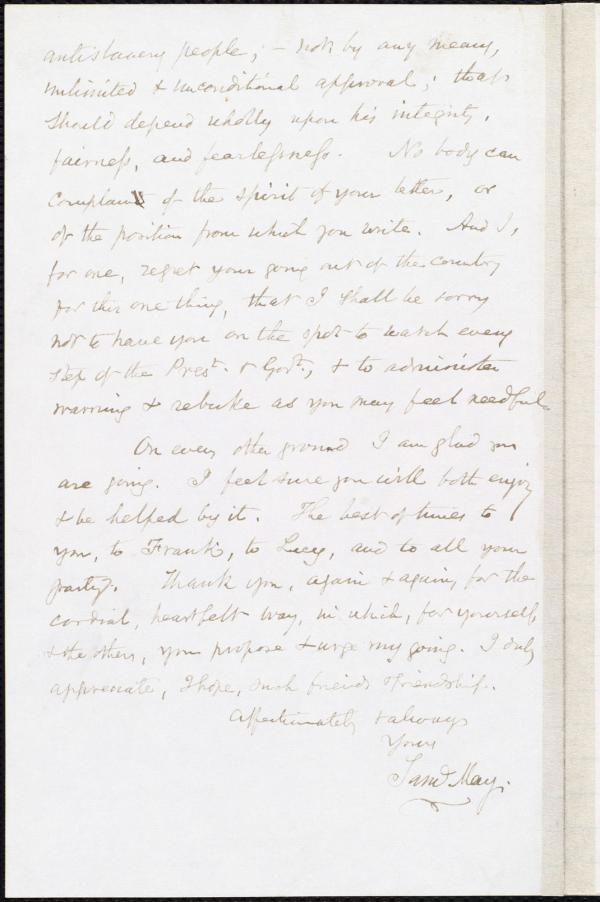 antislavery people; – not by any means,
unlimited & unconditional approval; that
should depend wholly upon his integrity,
fairness, and fearlessness. No body can
complain of the spirit of your letter, or
of the position from which you write. And I,
for one, regret your going out of the country
for this one thing, that I shall be sorry
not to have you on the spot to watch every
step of the Prest. & Govt., & to administer
warning & rebuke as you may feel needful.
On every other ground I am glad you
are going. I feel sure you will both enjoy
& be helped by it. The best of times to
you, to Frank, to Lucy, and to all your
party. Thank you, again & again, for the
cordial, heartfelt way, in which, for yourself,
& the others, you propose & urge my going. I duly
appreciate, I hope, such friends & friendship.
Affectionately & always
Yours
Saml. May.